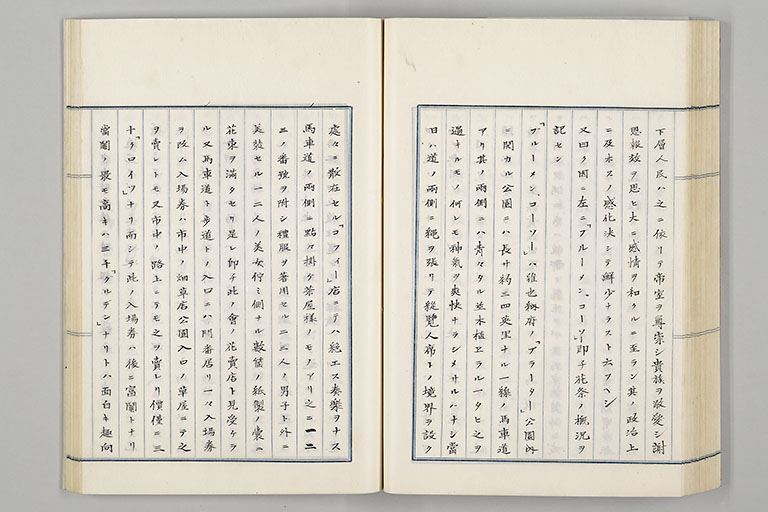 下層人民ハ之ニ依リテ帝室ヲ尊崇シ貴族ヲ敬愛シ謝
恩報效ヲ思ヒ大ニ感情ヲ和クルニ至ラン其ノ政治上
ニ及ホスノ感化決シテ鮮少ナラスト云フヘシ
又曰ク因ニ左ニ「ブルーメン、コーソー」即チ花祭ノ概況ヲ
記セン
「ブルーメン、コーソー」ハ維也納府ノ「プラーター」公園内
ニ開カル公園ニハ長サ約三四英里ナル一條ノ馬車道
アリ其ノ兩側ニハ青々タル並木植ヱラル一タヒ之ヲ
過キルモノ何レモ神氣ヲ爽快ナラシメサルハナシ當
日ハ道ノ兩側ニ繩ヲ張リテ縱覽人席トノ境界ヲ設ク
處々ニ散在セル「コフィー」店ニテハ絶エス奏樂ヲナス
馬車道ノ兩側ニ點々掛ケ茶屋樣ノモノアリ之ニ一二
三ノ番號ヲ附シ禮服ヲ著用セル二三人ノ男子ト外ニ
美裝セル一二人ノ美女佇ミ側ナル數箇ノ紙製ノ囊ニ
花束ヲ滿タセリ是レ即チ此ノ會ノ花賣店ト見受ケラ
ル又馬車道ト歩道トノ入口ニハ門番居リ一々入場券
ヲ改ム入場券ハ市中ノ烟草店公園入口ノ草屋ニテ之
ヲ賣レトモ又市中ノ路上ニテモ之ヲ賣レリ價僅ニ三
十「クロイツ」ナリ而シテ此ノ入場券ハ後ニ富鬮トナリ
當鬮ノ最モ高キハ三千「グルデン」ナリトハ面白キ趣向